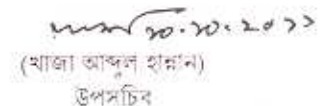 ২০.১০.২০১১
(খাজা আব্দুল হান্নান)
উপসচিব